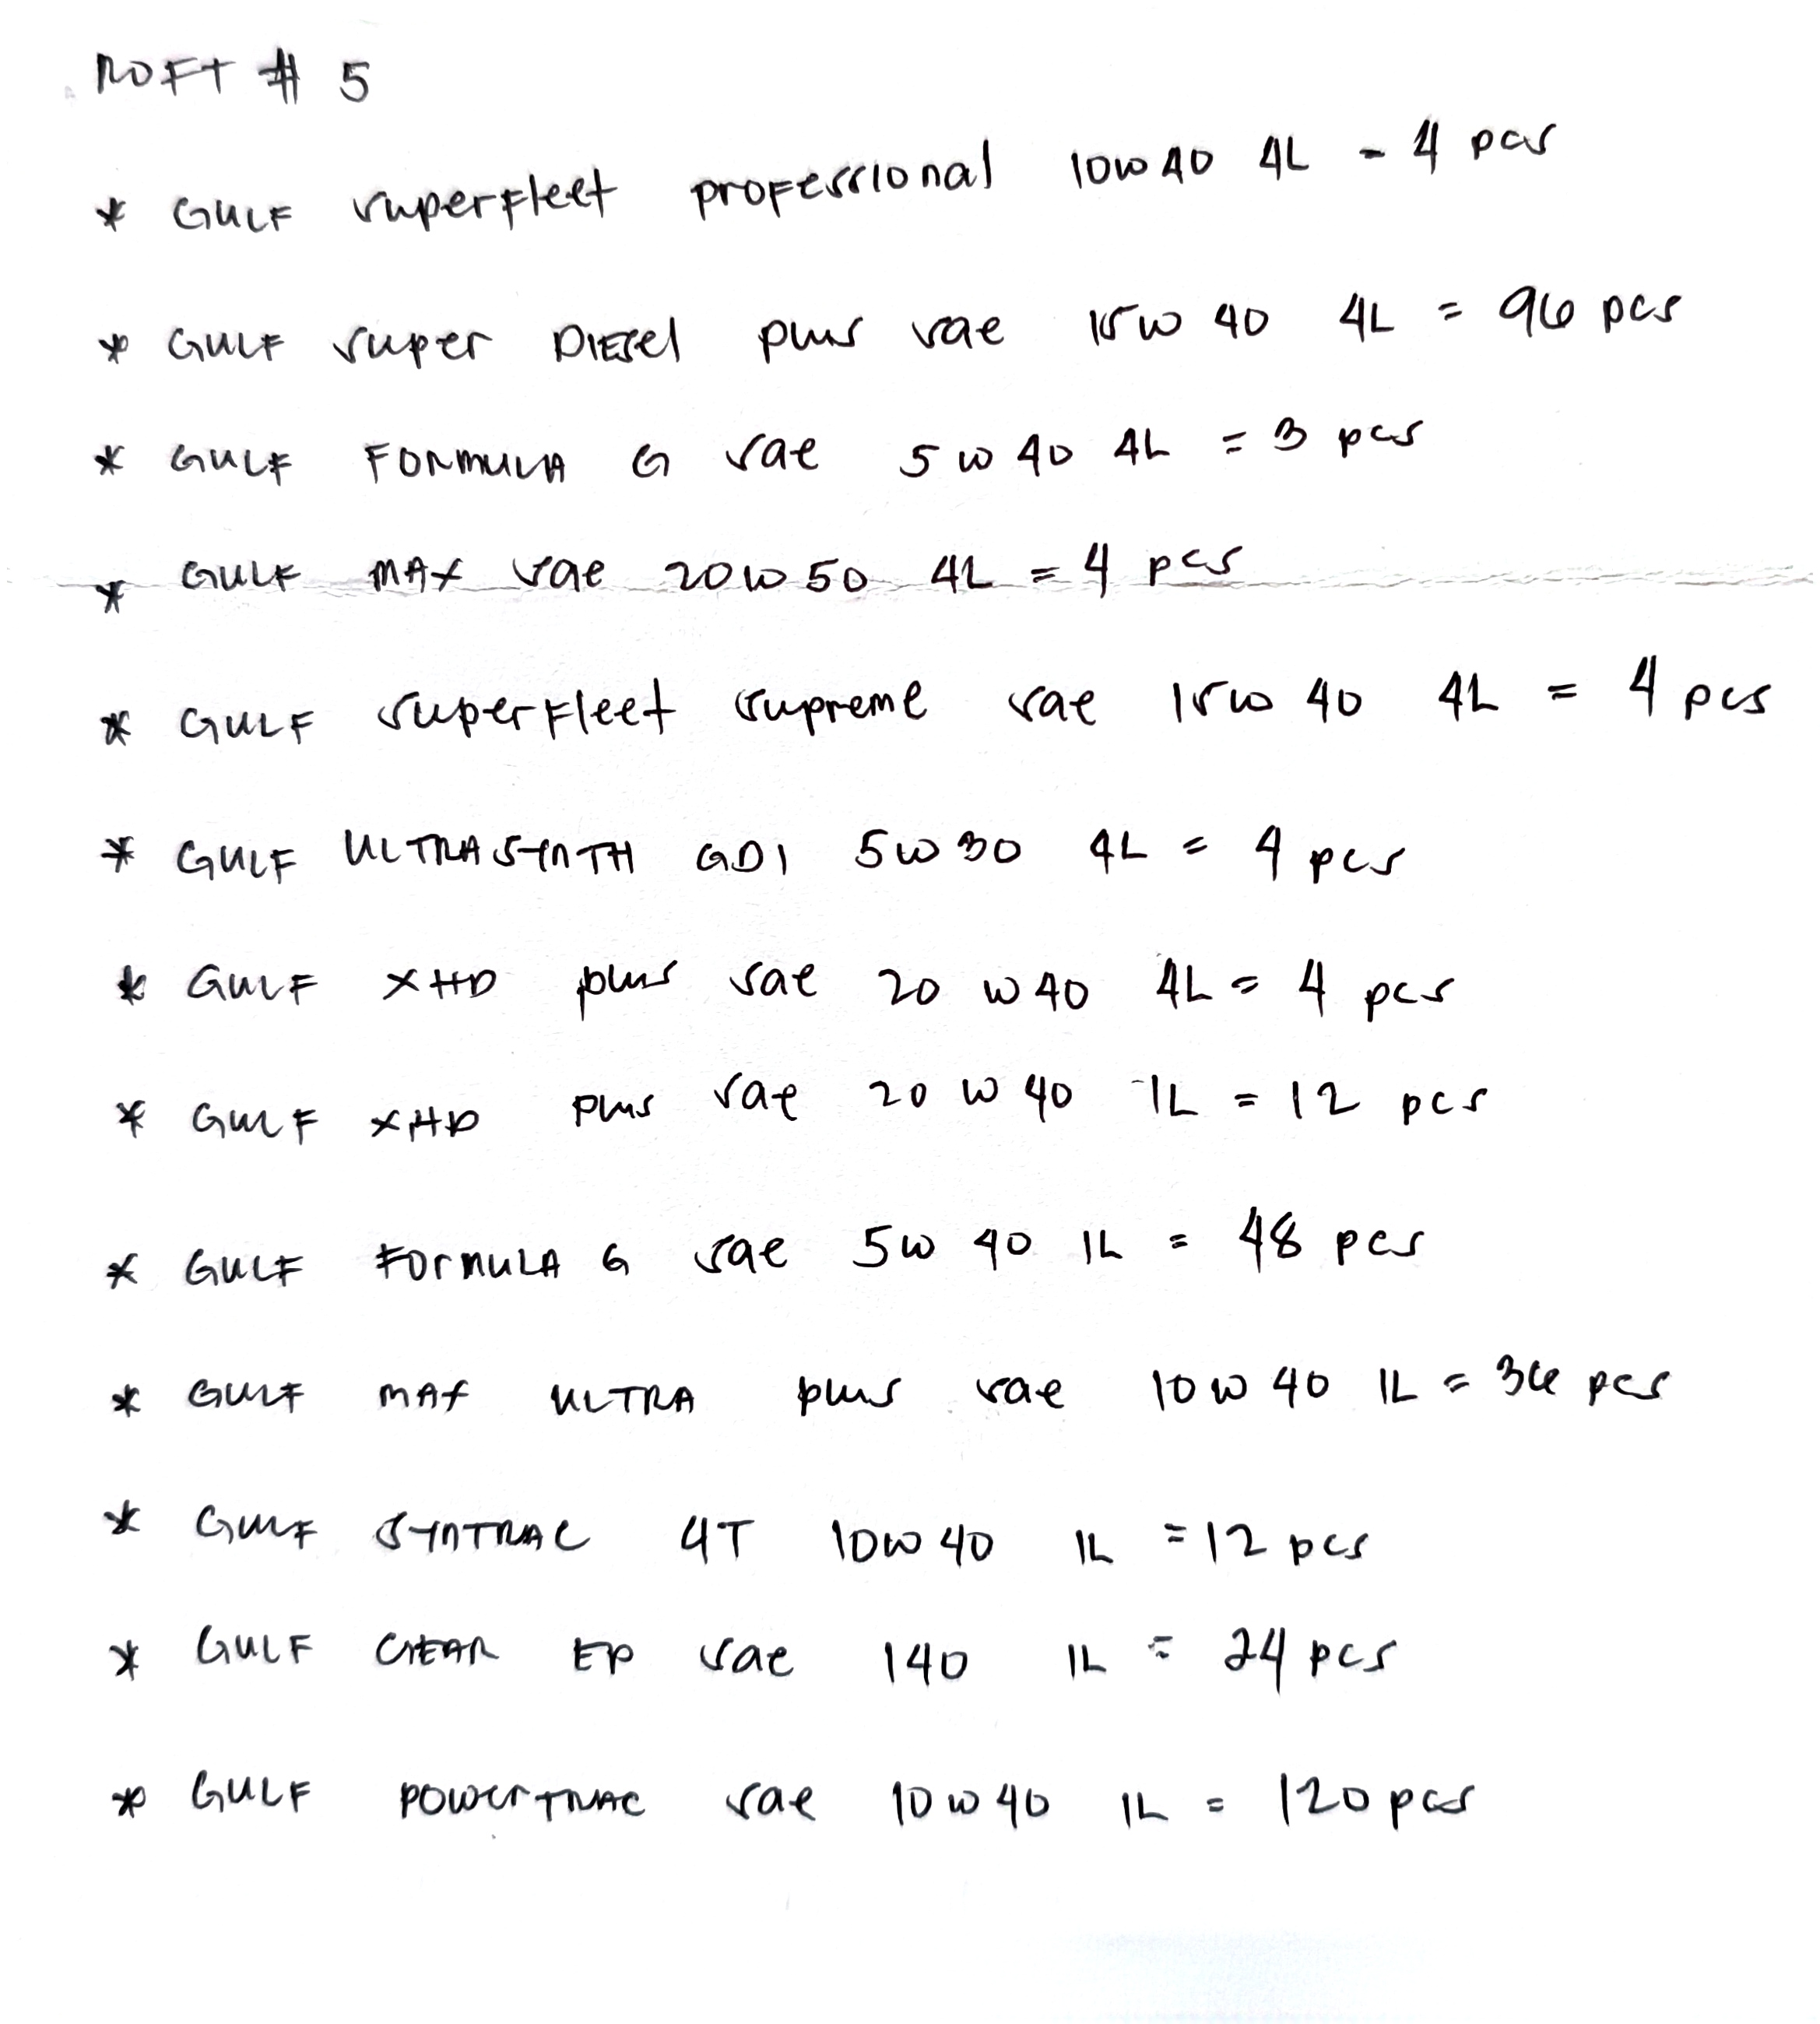 ROFT # 5
* GULF superfleet professional 10W40 4L - 4 pcs
* GULF super DIESel plus sae 15W 40 4L = 96 pcs
* GULF FORMULA G sae 5W 40 4L = 3 pcs
* GULF MAX sae 20W50 4L = 4 pcs
* GULF superfleet supreme sae 15W 40 4L = 4 pcs
* GULF ULTRASYNTH GDI 5W30 4L = 4 pcs
* GULF XHD plus sae 20 W40 4L = 4 pcs
* GULF XHD plus sae 20 W 40 1L = 12 pcs
* GULF FORMULA G sae 5W 40 1L = 48 pcs
* GULF MAX ULTRA plus sae 10W 40 1L = 36 pcs
* GULF SYNTRAC 4T 10W 40 1L = 12 pcs
* GULF GEAR EP sae 140 1L = 24 pcs
* GULF POWERTRAC sae 10W40 1L = 120 pcs